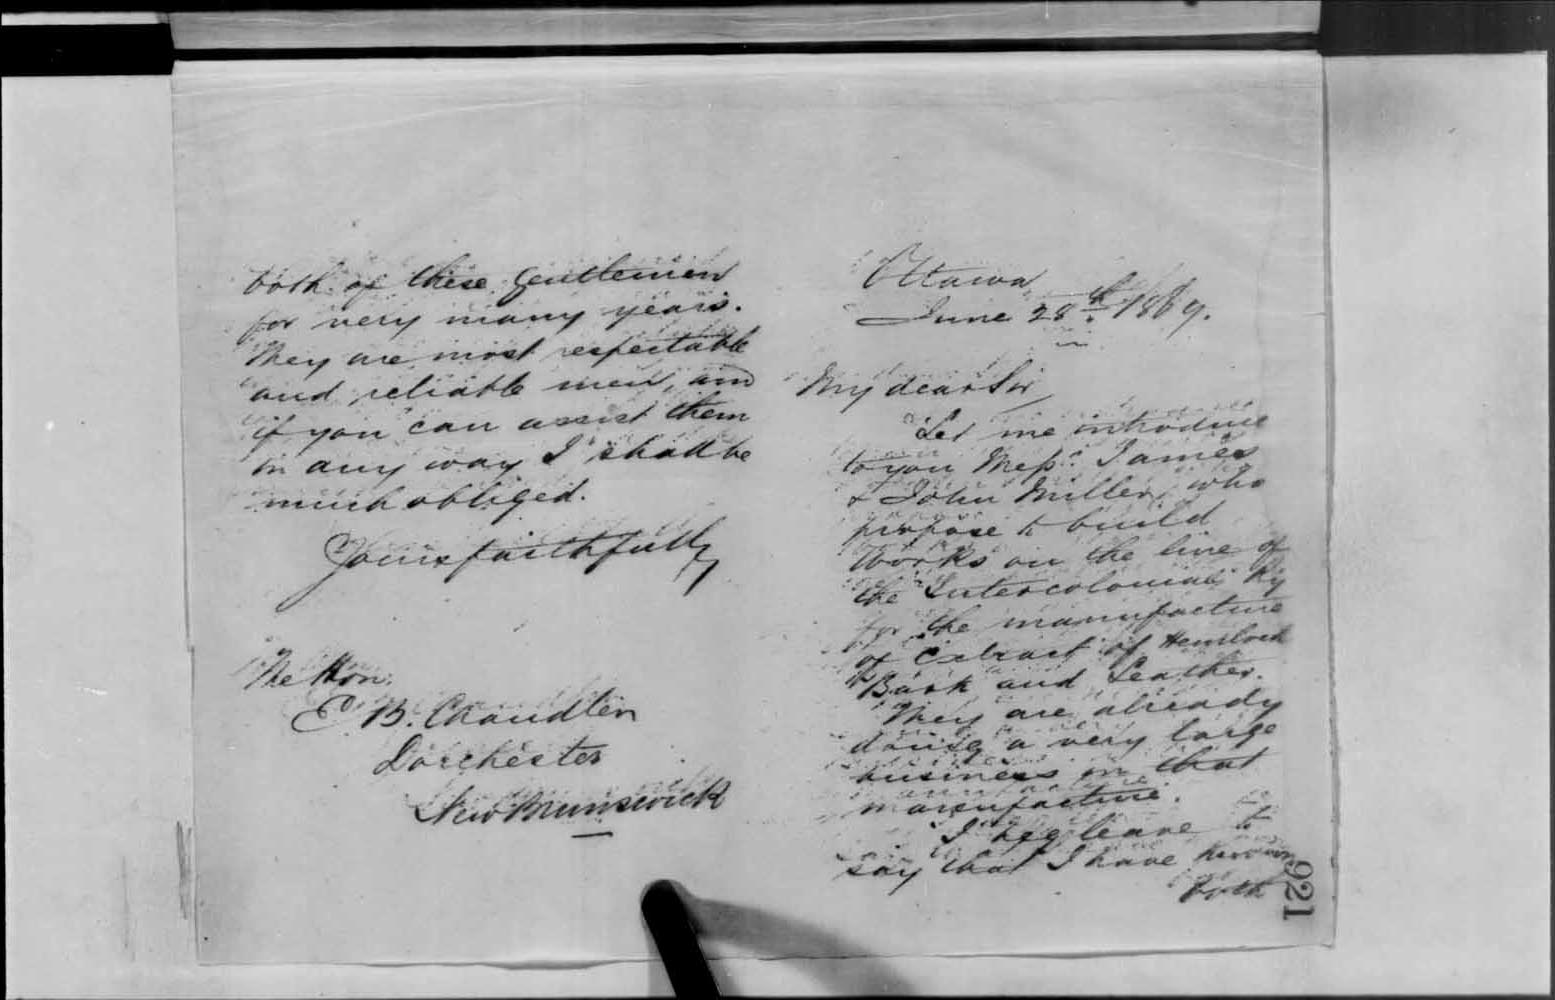 Ottawa
June 28th 1869.
My dear Sir
Let me introduce
to you Messrs. James
& John Miller, who
propose to build
Works on the line of
the Intercolonial Ry
for the manufacture
of Extract of Hemlock
Bark and Leather.
They are already
doing a very large
business in that
manufacture.
I beg leave to
say that I have known
both
921
both of these gentlemen
for very many years.
They are most respectable
and reliable men, and
if you can assist them
in any way I shall be
much obliged.
Yours faithfully
The Hon.
E. B. Chandler
Dorchester
New Brunswick